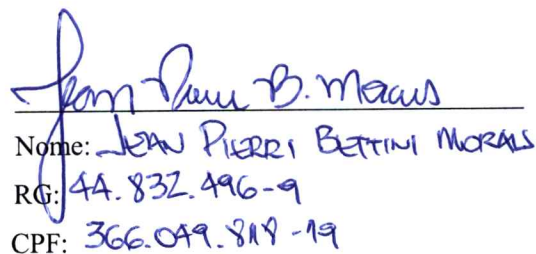 Jean Pierri B. Morais
Nome: JEAN PIERRI BETTINI MORAIS
RG: 44.832.496-9
CPF: 366.049.818-19